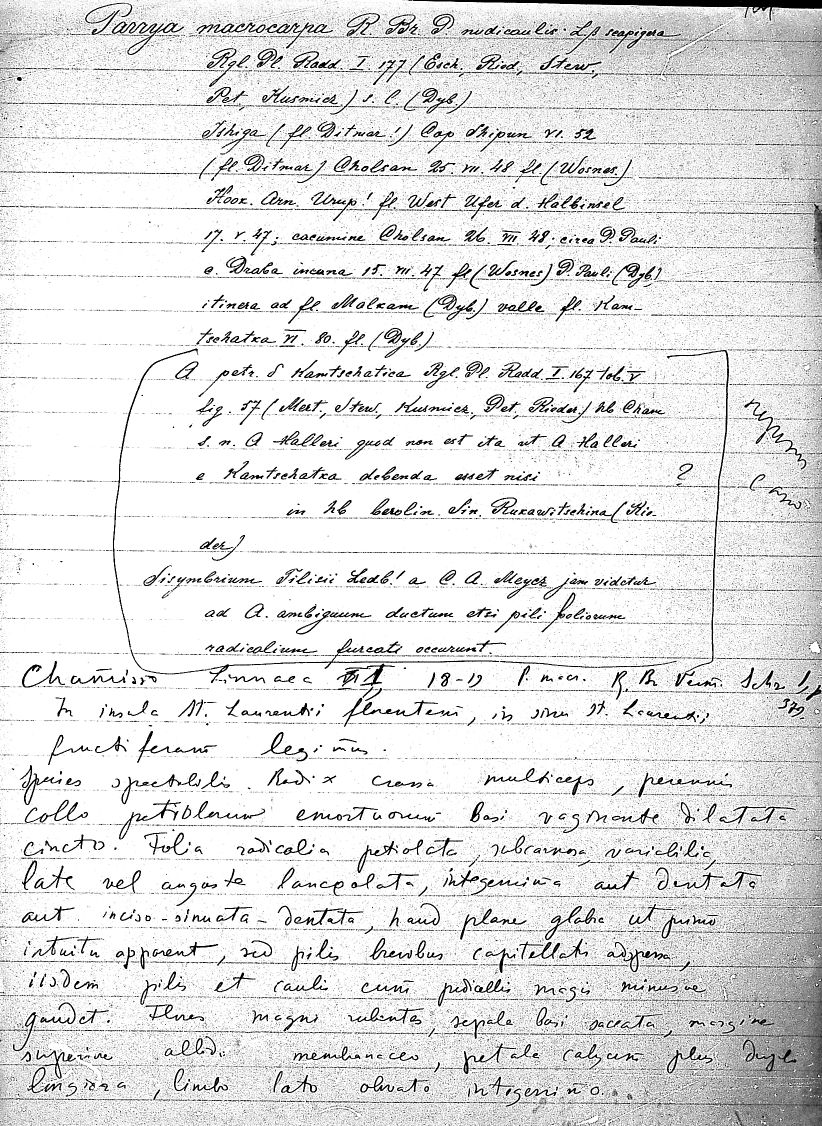 Parrya macrocarpa R. Br. P. nudicaulis L β scapigera
Rgl. Pl. Radd. I. 177 (Esch, Ried, Stew,
Pet, Kusmicz) s. C. (Dyb)
Ishiga (fl. Ditmar!) Cap Shipun VI. 52
(fl. Ditmar) Cholsan 25. VII. 48 fl (Wosnes.)
Hook. Arn. Urup! fl. West Ufer d. Halbinsel
17. V. 47; cacumine Cholsan 26. VII 48; circa P. Pauli
c. Draba incana 15. VII. 47 fl (Wosnes) P. Pauli (Dyb),
itinera ad fl. Malxam (Dyb.) valle fl. Kam-
tschatxa VI. 80. fl. (Dyb)
A petr. δ Kamtschatica Rgl. Pl. Radd I. 167 tab. V
fig. 57 (Mert, Stew, Kusmicz, Pet, Rieder) hb Cham
s. n. A Halleri quod non est ita ut A Halleri
e Kamtschatxa debenda esset nisi ?
in hb berolin. Sin. Ruxawitschina (Rie-
der)
Sisymbrium Tilisii Ledb! a C. A. Meyer jam videtur
ad A. ambiguum ductum etsi pili foliorum
radicalium furcati occurunt.
Chamisso Linnaea I, 18-19 P. macr. R. Br Verm. Schr. I, p
379.
In insula St. Laurentii florentem, in sinu St. Laurentii
fructiferam legimus.
Species spectabilis. Radix crassa multiceps, perennis
collo petiolorum emortuorum basi vaginante dilatata
cincto. Folia radicalia petiolata, subcarnosa, variabilia,
late vel anguste lanceolata, integerrima aut dentata
aut inciso-sinuata-dentata, haud plane glabra ut primo
intuitu apparent, sed pilis brevibus capitellatis adspersa,
iisdem pilis et caulis cum pedicellis magis minusve
gaudet. Flores magni rubentes, sepala basi saccata, margine
superiore albido membranaceo, petala calycem plus duplo
longiora, limbo lato obovato integerrimo...